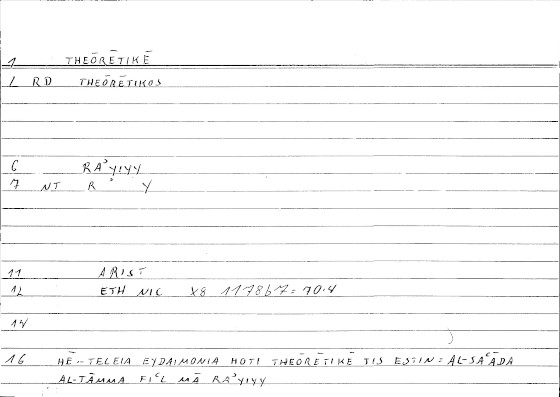 1 THEŌRĒTIKĒ
2 RD THEŌRĒTIKOS
6 RAʾYIYY
7 NT R ʾ Y
11 ARIST
12 ETH NIC X8 1178b7 = 70.4
14
16 HĒ - TELEIA EYDAIMONIA HOTI THEŌRĒTIKĒ TIS ESTIN = AL-SAʿĀDA
AL-TĀMMA FIʿL MĀ RAʾYIYY